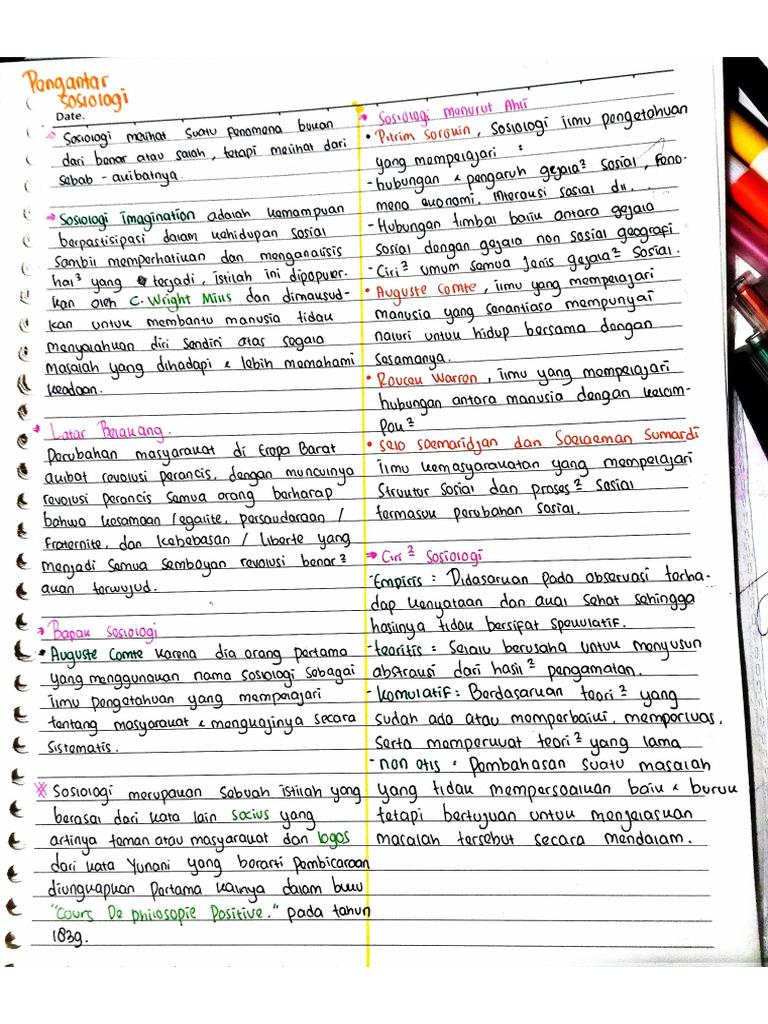 Pengantar
Sosiologi
Date.
→ Sosiologi melihat suatu fenomena bukan
dari benar atau salah, tetapi melihat dari
sebab - akibatnya.
→ Sosiologi imagination adalah kemampuan
berpastisipasi dalam kehidupan sosial
sambil memperhatikan dan menganalisis
hal² yang terjadi, istilah ini dipopuler-
kan oleh C. Wright Mills dan dimaksud-
kan untuk membantu manusia tidak
menyalahkan diri sendiri atas segala
masalah yang dihadapi & lebih memahami
keadaan.
→ Latar Belakang.
Perubahan masyarakat di Eropa Barat
akibat revolusi perancis, dengan munculnya
revolusi perancis semua orang berharap
bahwa kesamaan / egalite, persaudaraan /
fraternite, dan kebebasan / liberte yang
menjadi semua semboyan revolusi benar²
akan terwujud.
→ Bapak Sosiologi
• Auguste Comte karena dia orang pertama
yang menggunakan nama sosiologi sebagai
ilmu pengetahuan yang mempelajari
tentang masyarakat & mengkajinya secara
sistematis.
※ Sosiologi merupakan sebuah istilah yang
berasal dari kata latin socius yang
artinya teman atau masyarakat dan logos
dari kata Yunani yang berarti pembicaraan
diungkapkan pertama kalinya dalam buku
"Cours De philosopie Positive." pada tahun
1839.
→ Sosiologi menurut Ahli
• Pitrim Sorokin, Sosiologi ilmu pengetahuan
yang mempelajari :
- hubungan & pengaruh gejala² sosial, feno-
mena ekonomi, interaksi sosial dll.
- Hubungan timbal balik antara gejala
sosial dengan gejala non sosial geografi
- Ciri² umum semua jenis gejala² sosial.
• Auguste Comte, ilmu yang mempelajari
manusia yang senantiasa mempunyai
naluri untuk hidup bersama dengan
sesamanya.
• Roucek Warren, ilmu yang mempelajari
hubungan antara manusia dengan kelom-
pok²
• Selo Soemardjan dan Soelaeman Sumardi
ilmu kemasyarakatan yang mempelajari
struktur sosial dan proses² sosial
termasuk perubahan sosial.
→ Ciri² Sosiologi
- Empiris : Didasarkan pada observasi terha-
dap kenyataan dan akal sehat sehingga
hasilnya tidak bersifat spekulatif.
- teoritis : Selalu berusaha untuk menyusun
abstraksi dari hasil² pengamatan.
- Komulatif : Berdasarkan teori² yang
sudah ada atau memperbaiki, memperluas,
serta memperkuat teori² yang lama
- non etis : Pembahasan suatu masalah
yang tidak mempersoalkan baik & buruk
tetapi bertujuan untuk menjelaskan
masalah tersebut secara mendalam.